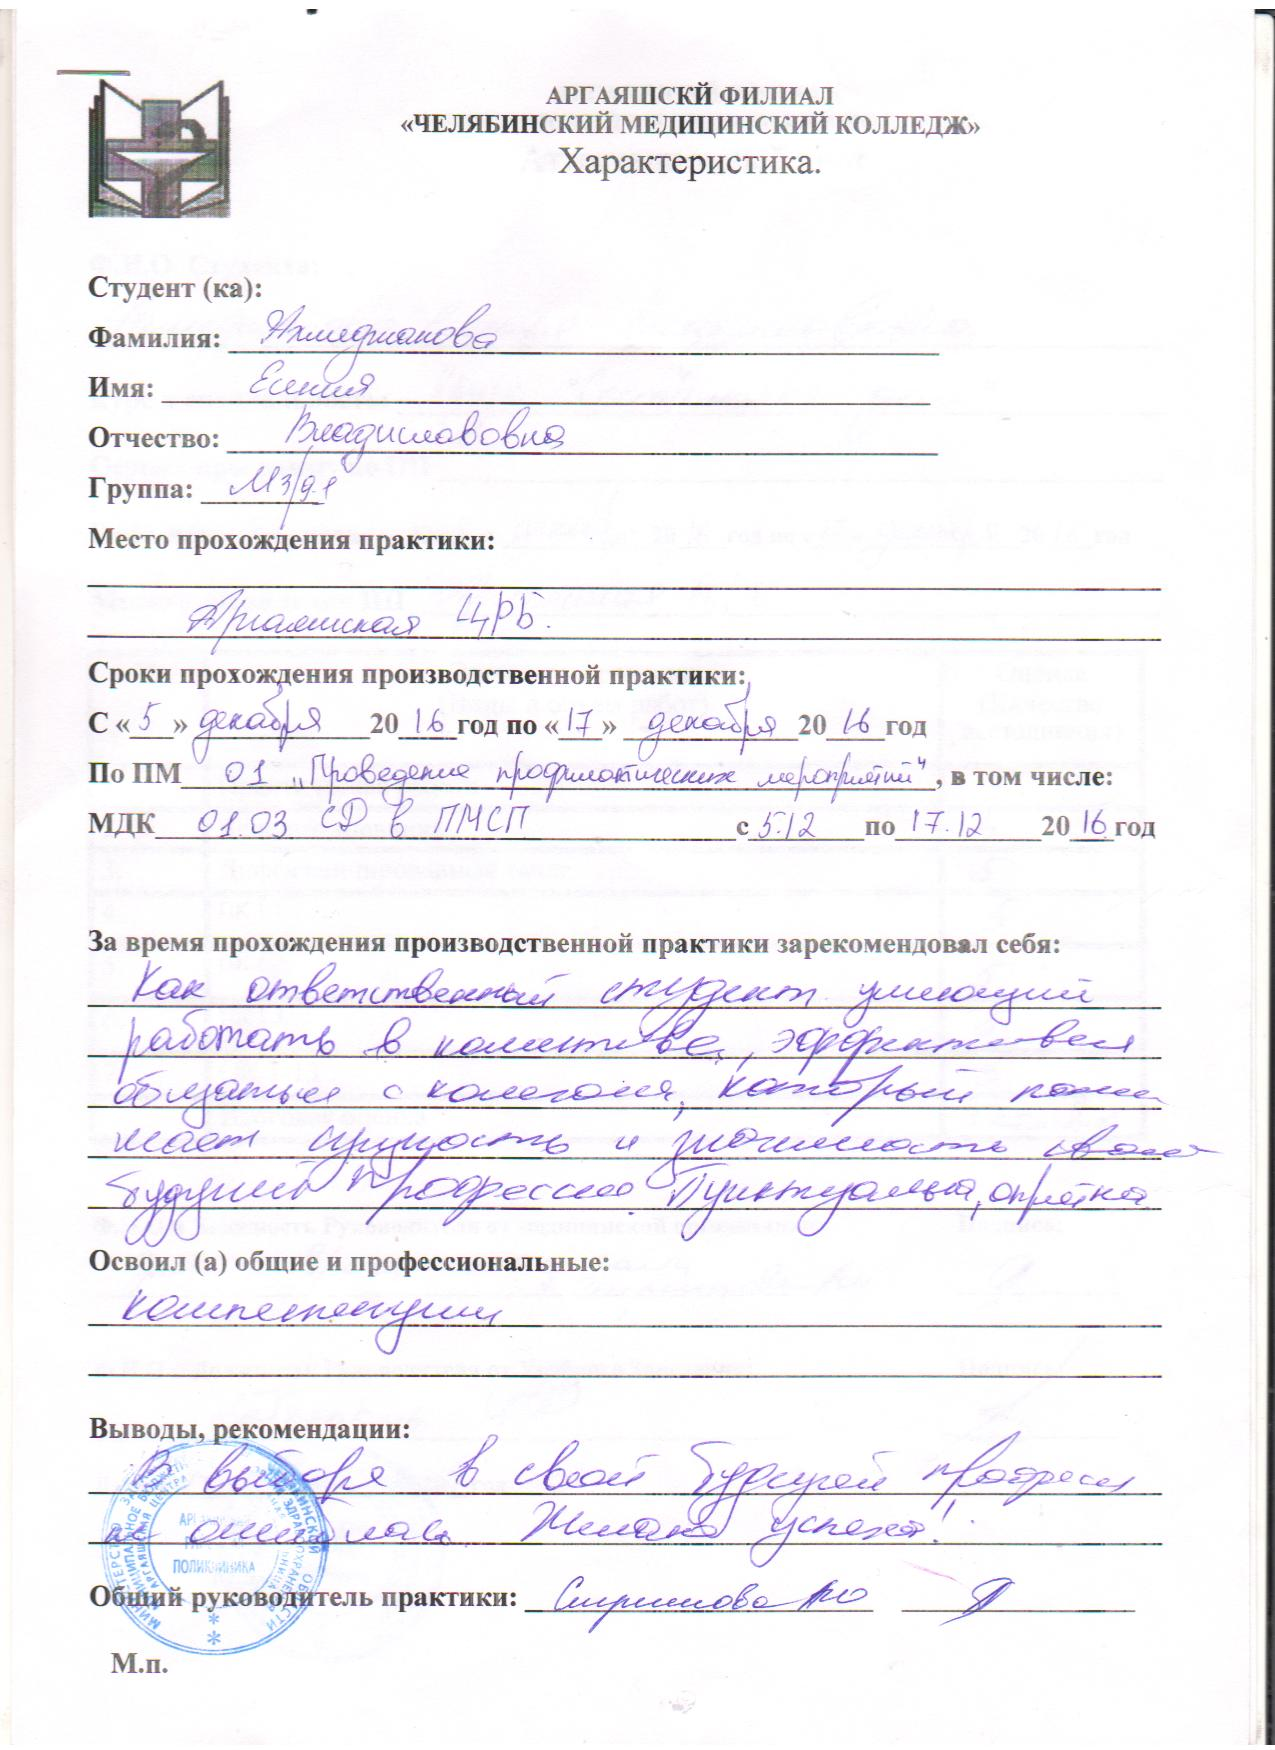 АРГАЯШСКЙ ФИЛИАЛ
«ЧЕЛЯБИНСКИЙ МЕДИЦИНСКИЙ КОЛЛЕДЖ»
Характеристика.
Студент (ка):
Фамилия: Ахмеджанова
Имя: Есения
Отчество: Владиславовна
Группа: М3/9.1
Место прохождения практики:
Аргаяшская ЦРБ.
Сроки прохождения производственной практики:
С «5» декабря 2016 год по «17» декабря 2016 год
По ПМ 01 „Проведение профилактических мероприятий“, в том числе:
МДК 01.03 СД в ПМСП с 5.12 по 17.12 2016 год
За время прохождения производственной практики зарекомендовал себя:
Как ответственный студент умеющий
работать в коллективе,
с который
сущность и значимость своей
будущей профессии. Пунктуальна, опрятна.
Освоил (а) общие и профессиональные:
компетенции
Выводы, рекомендации:
В выборе в своей будущей професси
не ошиблась. Желаю успеха!
Общий руководитель практики:
АРГАЯШСКАЯ ЦЕНТРА
ПОЛИКЛИНИКА
М.п.